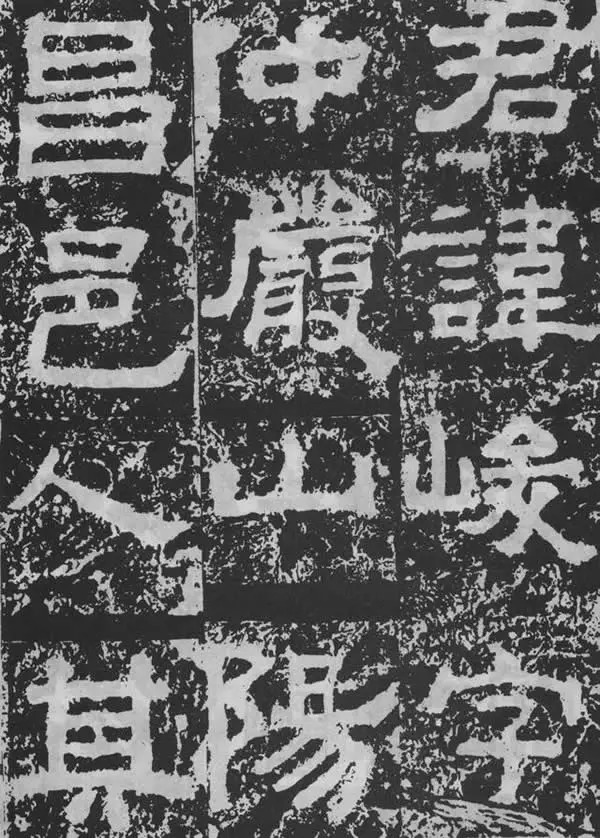 君諱峻字
仲嚴山陽
昌邑人其